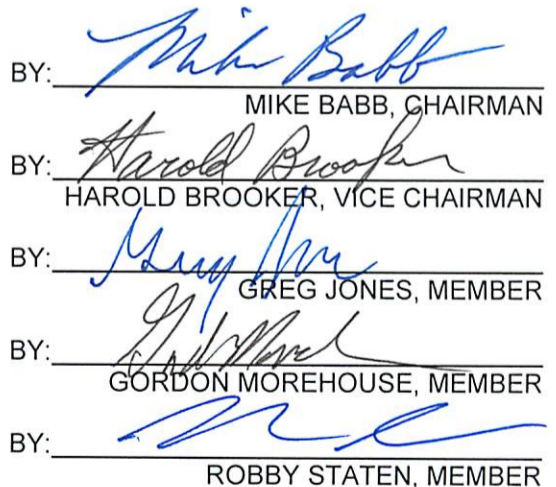 BY: Mike Babb
MIKE BABB, CHAIRMAN
BY: Harold Brooker
HAROLD BROOKER, VICE CHAIRMAN
BY:
GREG JONES, MEMBER
BY:
GORDON MOREHOUSE, MEMBER
BY:
ROBBY STATEN, MEMBER